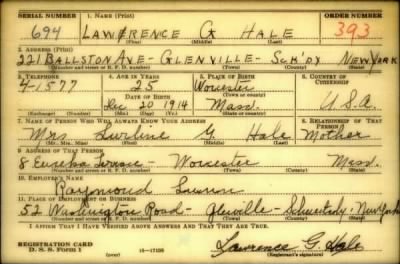 SERIAL NUMBER 1. NAME (Print) ORDER NUMBER
694 LAWRENCE G HALE 393
(First) (Middle) (Last)
2. ADDRESS (Print)
221 BALLSTON AVE - GLENVILLE - SCH'DY NEW YORK
(Number and street or R. F. D. number) (Town) (County) (State)
3. TELEPHONE 4. AGE IN YEARS 5. PLACE OF BIRTH 6. COUNTRY OF CITIZENSHIP
4-1577 25 Worcester
DATE OF BIRTH (Town or county)
Dec 20 1914 Mass. U.S.A.
(Exchange) (No.) (Mo.) (Day) (Yr.) (State or country)
7. NAME OF PERSON WHO WILL ALWAYS KNOW YOUR ADDRESS 8. RELATIONSHIP OF THAT PERSON
Mrs G Hale Mother
(Mr., Mrs., Miss) (First) (Middle) (Last)
9. ADDRESS OF THAT PERSON
8 Eureka Terrace - Worcester Mass.
(Number and street or R. F. D. number) (Town) (County) (State)
10. EMPLOYER'S NAME
Raymond
11. PLACE OF EMPLOYMENT OR BUSINESS
52 Washington Road - Glenville - New York
(Number and street or R. F. D. number) (Town) (County) (State)
I AFFIRM THAT I HAVE VERIFIED ABOVE ANSWERS AND THAT THEY ARE TRUE.
Lawrence G. Hale
REGISTRATION CARD
D. S. S. Form 1 (over) (Registrant's signature)